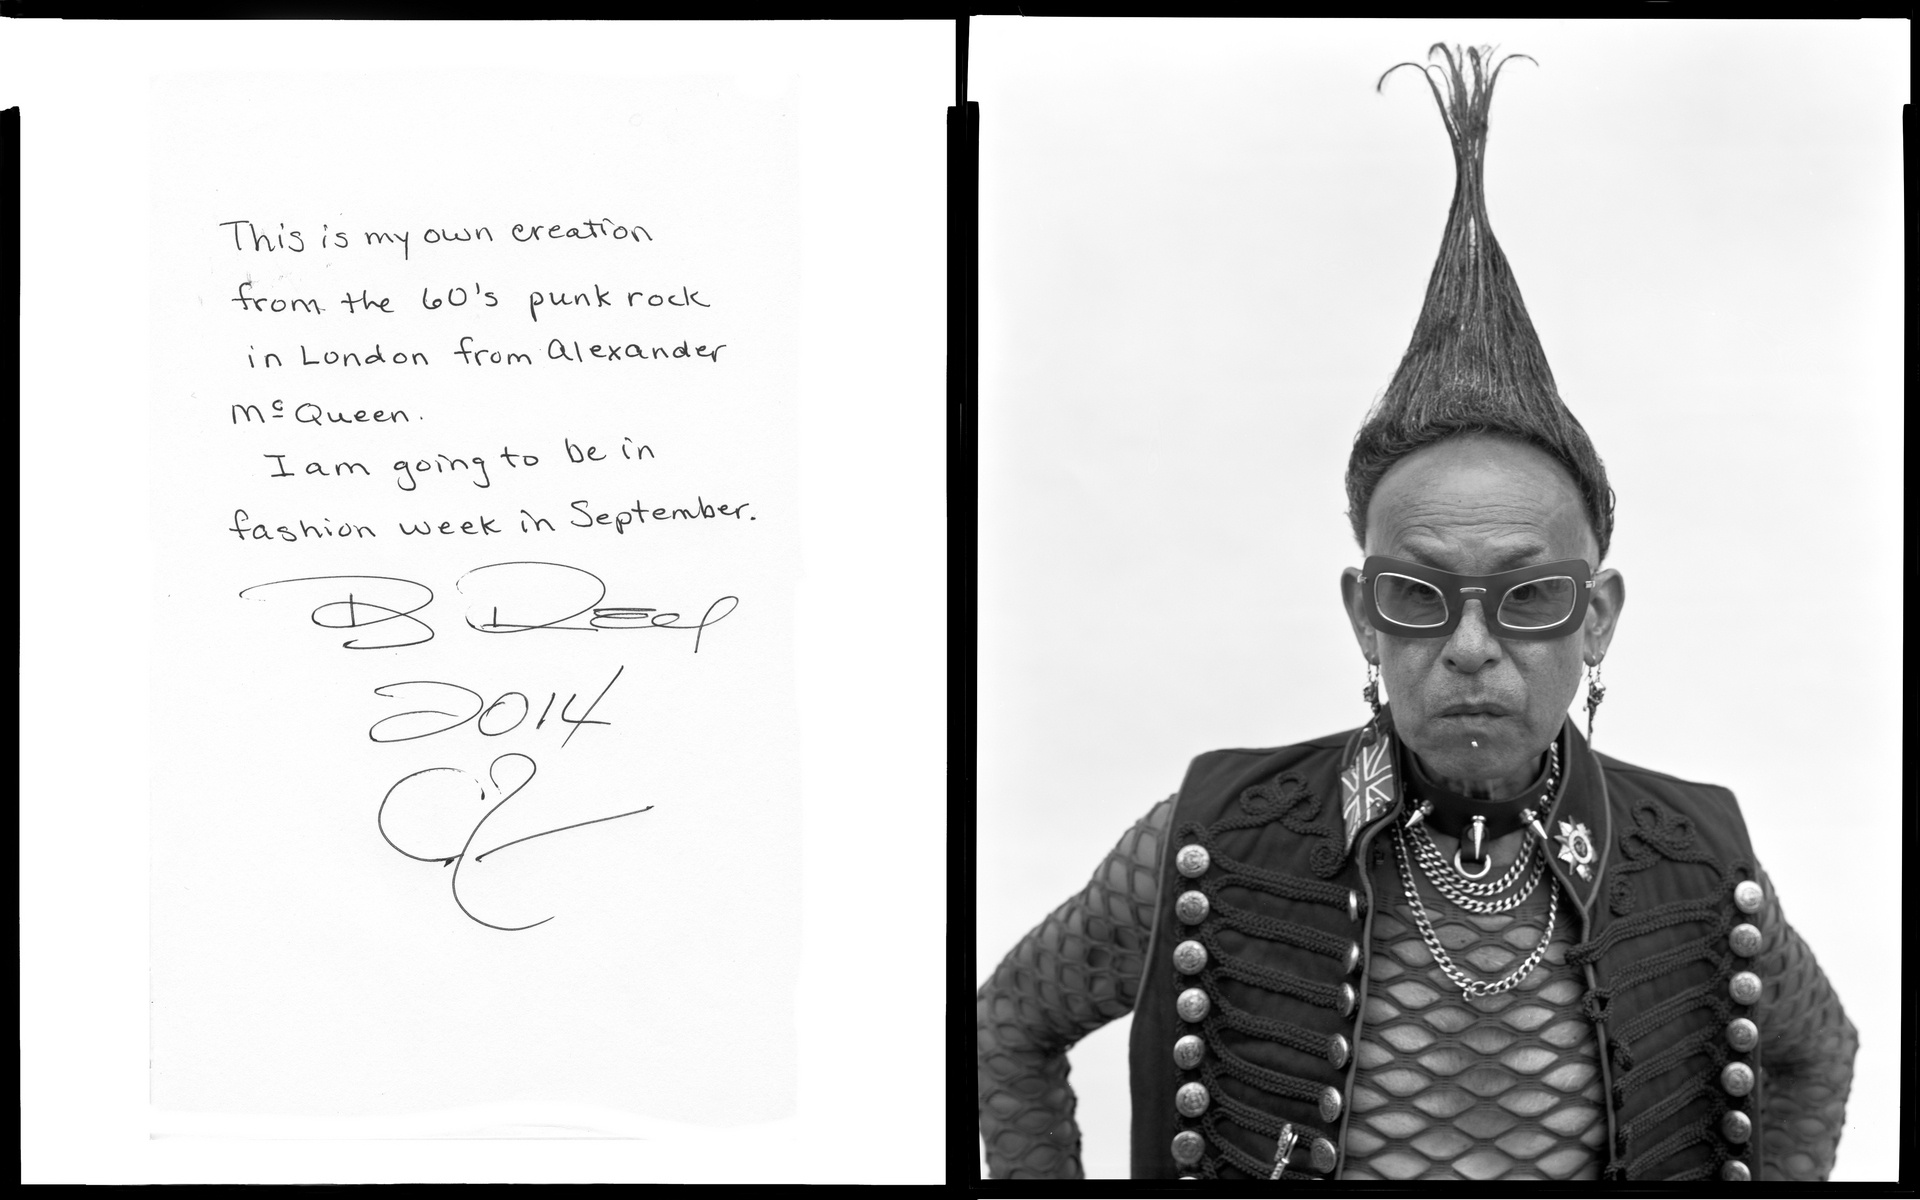 This is my own creation
from the 60's punk rock
in London from Alexander
McQueen.
I am going to be in
fashion week in September.
2014